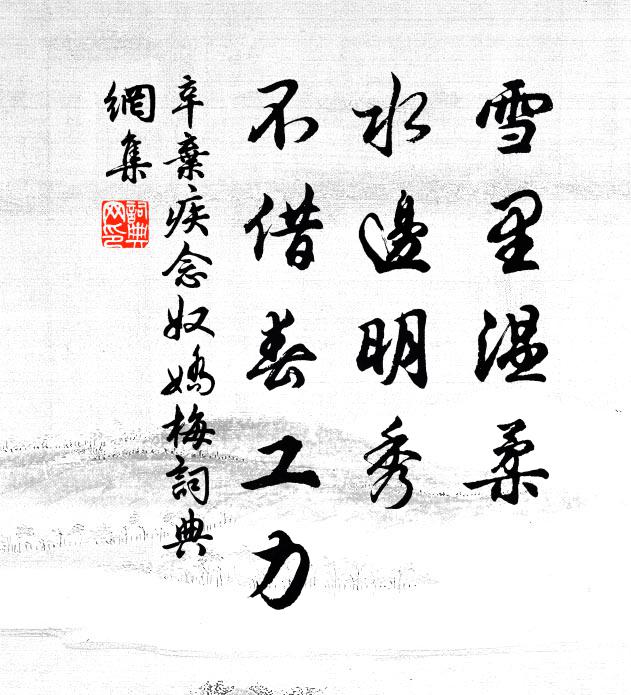 雪里温柔
水邊明秀
不借春工力
辛棄疾念奴嬌梅詞典
網集
詞典
网印